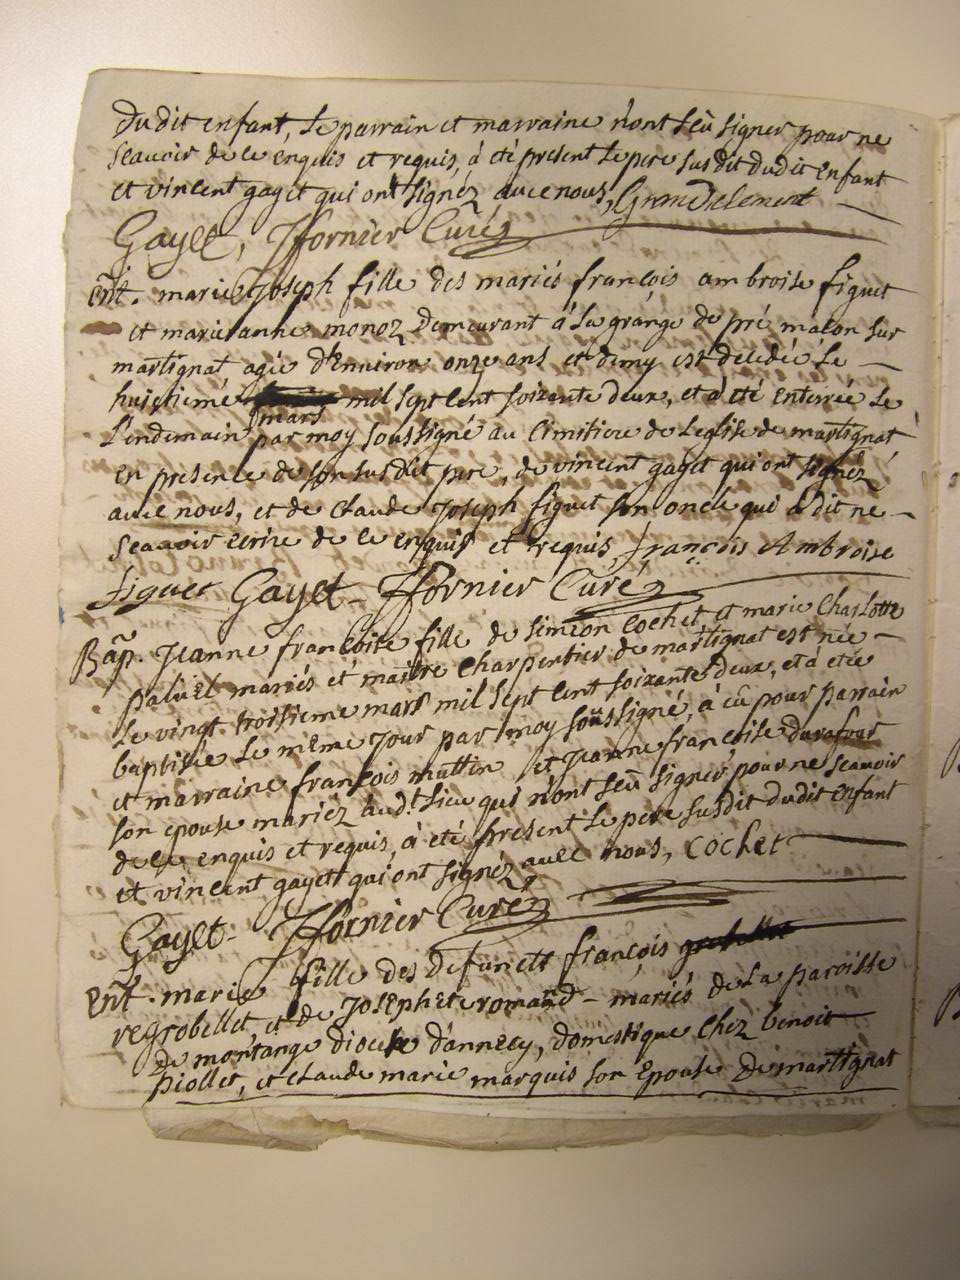 dudit enfant, le parrain et marraine n'ont sëu signer pour ne
scavoir de ce enquis et requis, à eté present le pere susdit dudit enfant
et vincent gayet qui ont signéz avec nous, GrandClement
Gayet, Jfornier Curéz
Ent. marie Joseph fille des mariés françois ambroise figuet
et marie anne monoz demeurant à la grange de pré malon sur
martignat agée d'Environ onze ans et demy est decedée le
huictieme mil sept cent soixante deux, et à eté enterrée le
mars
L'endemain par moy soussigné au Cimitiere de L'eglise de martignat
en presence de son susdit pere, de vincent gayet qui ont signéz
avec nous, et de Claude Joseph figuet son oncle qui a dit ne
scavoir ecrire de ce enquis et requis françois Ambroise
figuet Gayet - Jfornier Curéz
Bap. Jeanne francoise fille de simeon Cochet, et marie Charlotte
paluel mariés et maitre Charpentier de martignat est née
le vingt troisieme mars mil sept cent soixante deux, et à etée
baptisée le même jour par moy soussigné, à eû pour parrain
et marraine françois muttin et Jeanne françoise durafour
son epouse mariéz aud.t lieu qui n'ont sëu signer pour ne scavoir
de ce enquis et requis, à eté present le pere susdit dudit enfant
et vincent gayet qui ont signéz avec nous, Cochet
Gayet - Jfornier Curéz
Ent. marie fille des defuncts françois grobellet
regrobellet, et de Josephete romand - mariés de la paroisse
de montange diocese d'annecy, domestique Chez benoit
piollet, et Claude marie marquis son Epouse de martignat